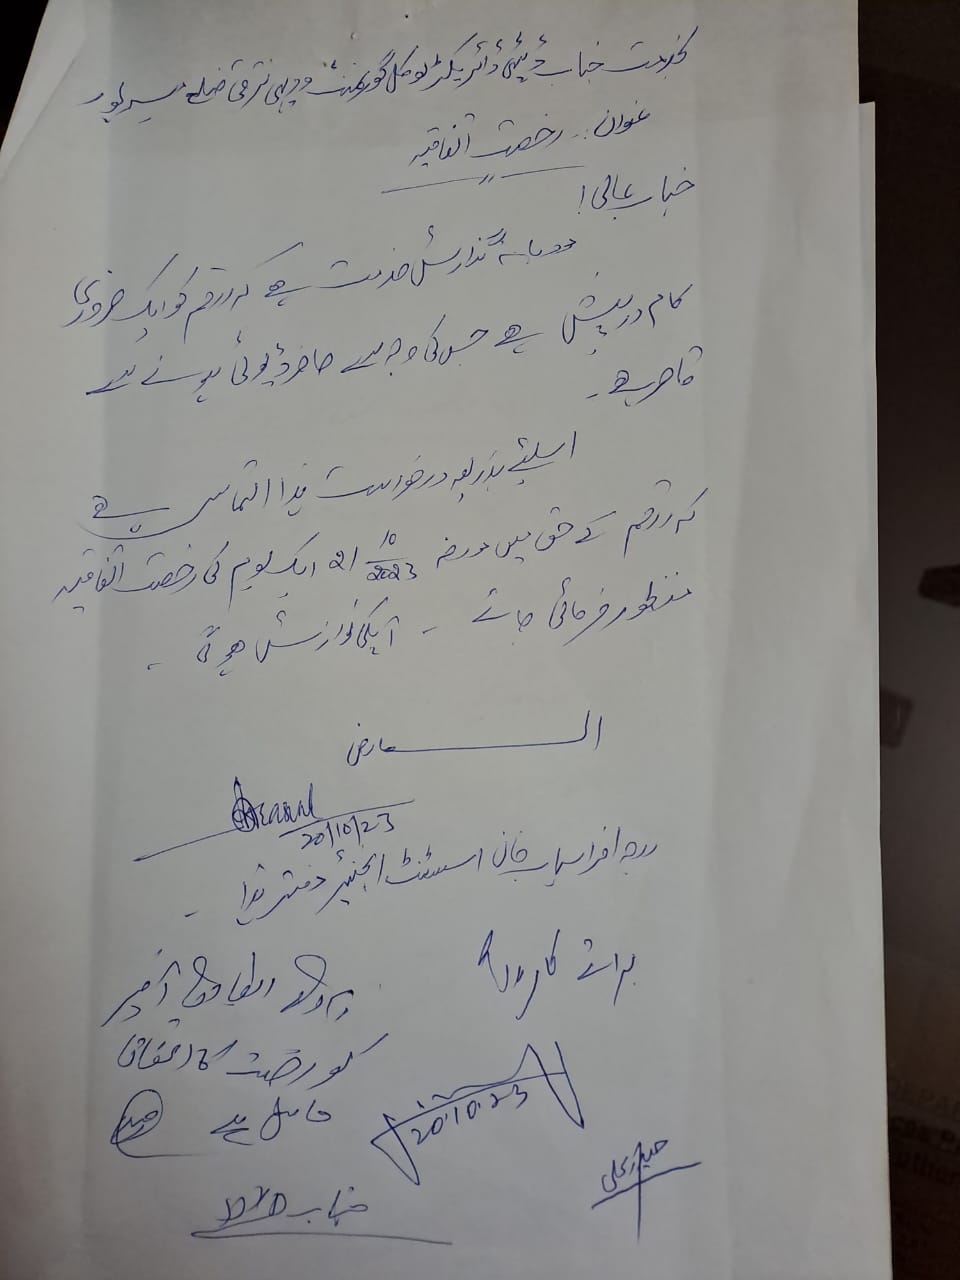 بخدمت جناب ڈپٹی ڈائریکٹر لوکل گورنمنٹ و دیہی ترقی ضلع میرپور
عنوان:۔ رخصت اتفاقیہ
جناب عالی!
مودبانہ گذارش خدمت ہے کہ راقم کو ایک ضروری
کام درپیش ہے جس کی وجہ سے حاضر ڈیوٹی ہونے سے
قاصر ہے۔
اسلیئے بذریعہ درخواست ہذا التماس ہے
کہ راقم کے حق میں مورخہ 21 10/2023 ایک یوم کی رخصت اتفاقیہ
منظور فرمائی جائے ۔ آپکی نوازش ہو گی ۔
العارض
20/10/23
راجہ افراسیاب خان اسسٹنٹ انجنیئر دفتر ہذا ۔
برائے کاروائی
آفیسر
کو رخصت کا استحقاق
حاصل ہے
20.10.23
حیدر علی
جناب DD